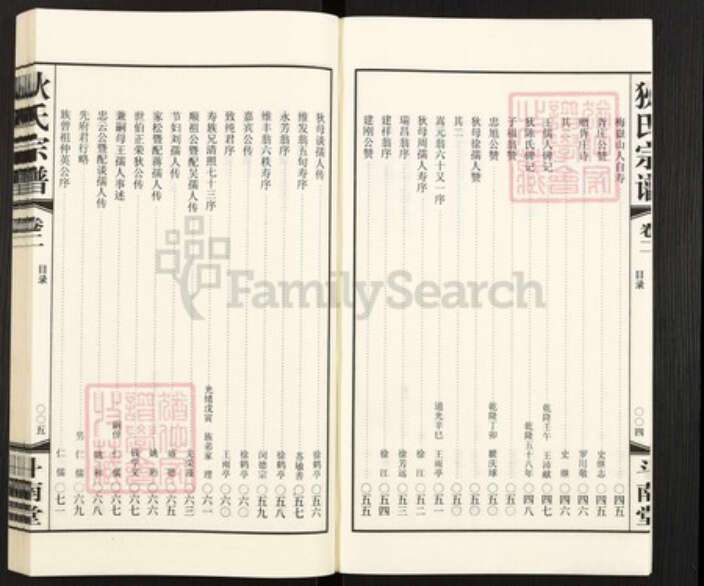 狄氏宗谱
卷二
目录
〇〇四
斗南堂
梅嶽山人自寿 〇四五
杳庄公赞 史继志 〇四五
赠杳庄诗 罗川敬 〇四六
其二 史继 〇四六
王孺人碑记 乾隆壬午 王沛献 〇四七
狄陈氏碑记 乾隆五十八年 〇四八
子福翁赞
忠旭公赞 乾隆丁卯
狄母徐孺人赞
其二
嵩元翁六十又一序 道光辛巳 王雨亭 〇五一
狄母周孺人寿序 徐江 〇五二
瑞昌翁序 徐芳远 〇五三
建祥翁序 徐江 〇五四
建刚公赞 〇五五
狄母谈孺人传 徐鹤亭 〇五六
维发翁五旬寿序 苏敏善 〇五七
永芳翁序 徐鹤亭 〇五八
维丰翁六秩寿序 闵德宗 〇五九
嘉宾公传 徐鹤亭 〇六〇
致纯君序 王雨亭 〇六〇
寿族兄清照七十三序 光绪戊寅 族弟家理 〇六一
顺祖公暨配吴孺人传 〇六三
节妇刘孺人传 〇六五
家松暨配蒋孺人传 〇六六
世伯正荣狄公传 〇六七
兼嗣母王孺人事述 嗣侄 仁儒 〇六七
忠云公暨配谈孺人传 〇六八
先府君行略 男 仁儒 〇六九
族曾祖仲英公序 仁儒 〇七一
狄氏宗谱
卷二
目录
〇〇五
斗南堂
FamilySearch